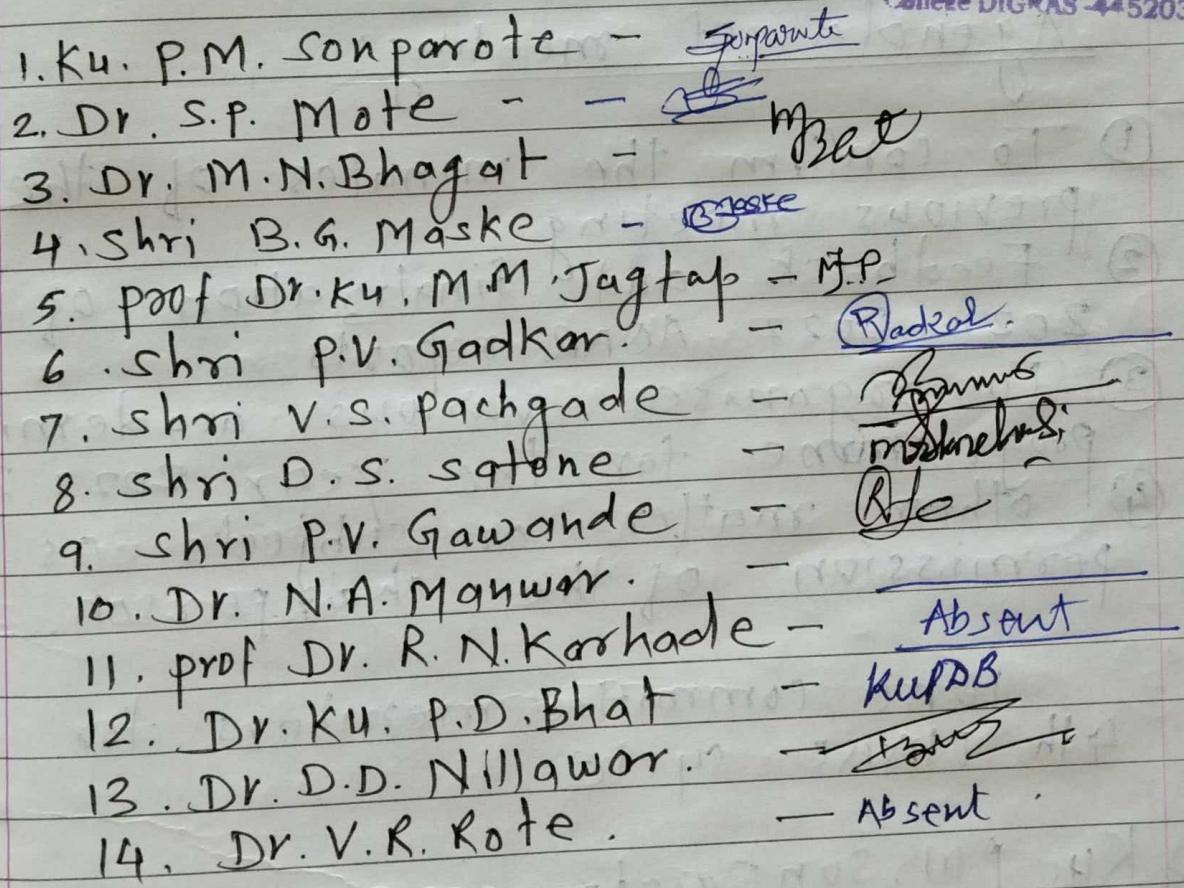 College DIGRAS-445203
1. Ku. P.M. Sonparote - Sonparote
2. Dr. S.P. Mote - -
3. Dr. M.N. Bhagat -
4. Shri B.G. Maske - BMaske
5. prof Dr. Ku. M.M. Jagtap - M.J.P.
6. Shri P.V. Gadkar. -
7. Shri V.S. Pachgade -
8. Shri D.S. Satone -
9. Shri P.V. Gawande -
10. Dr. N.A. Manwar. -
11. prof Dr. R.N. Karhade - Absent
12. Dr. Ku. P.D. Bhat - KuPDB
13. Dr. D.D. Nillawar. -
14. Dr. V.R. Rote. - Absent